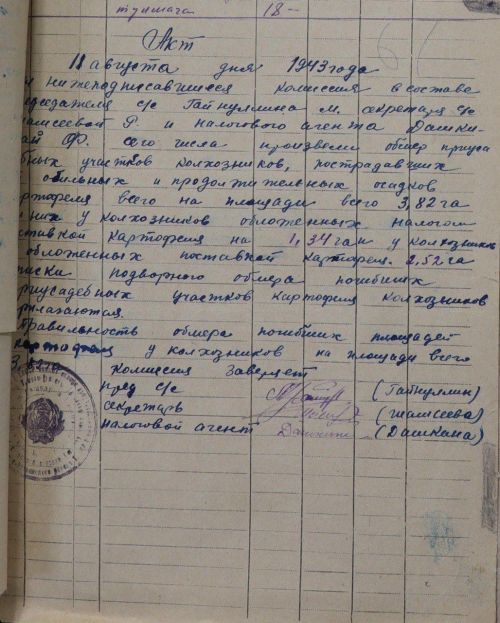 тулмача 18—
Акт
11 августа дня 1943 года
нижеподписавшиеся комиссия в составе
седателя с/с Гайнуллина М. секретаря с/с
Ф. и налогового агента Дашки-
Ф. сего числа произвели обмер приуса
бных участков колхозников, пострадавших
обильных и продолжительных осадков
ртофеля всего на площади всего 3,82 га
них у колхозников обложенных налогом
ставкой картофеля на 1,34 га и у колхозников
обложенных поставкой картофел. 2,52 га
писки подворного обмера погибших
риусадебных участков картофеля колхозников
рилагаются.
правильность обмера погибших площадей
картофеля у колхозников на площади всего
Комиссия заверяет
пред с/с (Гайнуллин)
секретарь
налоговой агент (Дашкина)